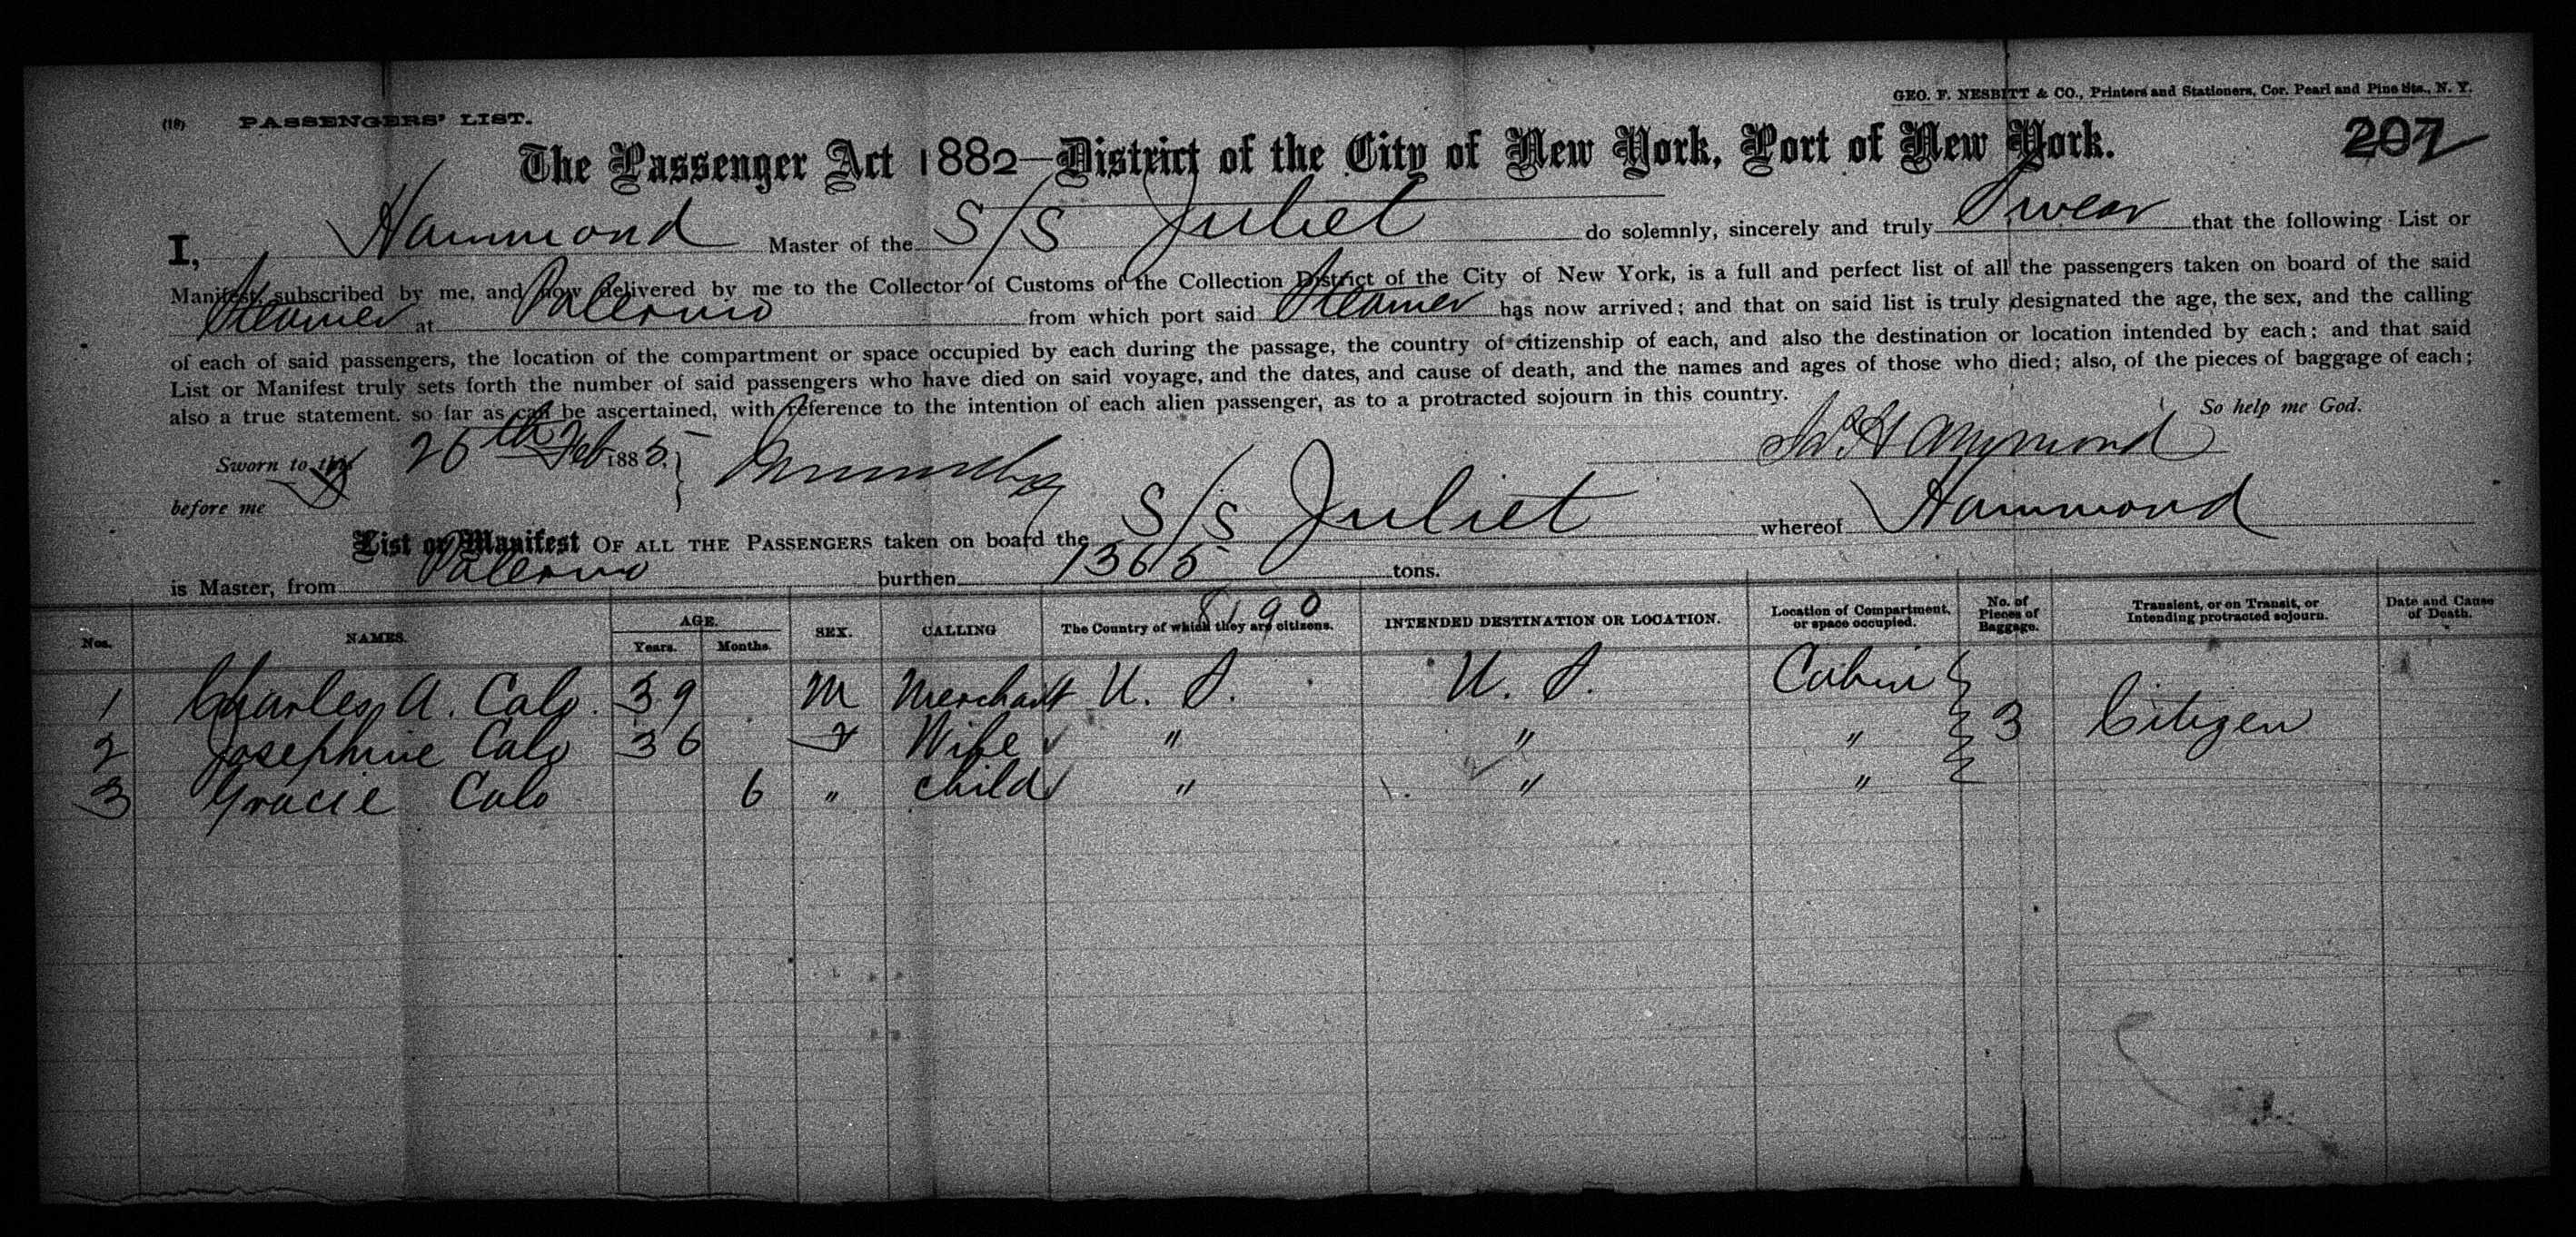 GEO. F. NESBITT & CO., Printers and Stationers, Cor. Pearl and Pine Sts., N. Y.
(18) PASSENGERS' LIST.
The Passenger Act 1882—District of the City of New York, Port of New York. 207
I, Hammond Master of the S/S Juliet do solemnly, sincerely and truly Swear that the following List or
Manifest, subscribed by me, and now delivered by me to the Collector of Customs of the Collection District of the City of New York, is a full and perfect list of all the passengers taken on board of the said
Steamer at Palermo from which port said Steamer has now arrived; and that on said list is truly designated the age, the sex, and the calling
of each of said passengers, the location of the compartment or space occupied by each during the passage, the country of citizenship of each, and also the destination or location intended by each; and that said
List or Manifest truly sets forth the number of said passengers who have died on said voyage, and the dates, and cause of death, and the names and ages of those who died; also, of the pieces of baggage of each;
also a true statement, so far as can be ascertained, with reference to the intention of each alien passenger, as to a protracted sojourn in this country. So help me God.
Sworn to this 26th Feb 1885. Hammond
before me
List or Manifest OF ALL THE PASSENGERS taken on board the S/S Juliet whereof Hammond
is Master, from Palermo burthen 1365 tons.
8190
Nos. NAMES. AGE. Years. Months. SEX. CALLING The Country of which they are citizens. INTENDED DESTINATION OR LOCATION. Location of Compartment, or space occupied. No. of Pieces of Baggage. Transient, or on Transit, or Intending protracted sojourn. Date and Cause of Death.
1 Charles A. Calo 39 M Merchant U. S. U. S. Cabin
2 Josephine Calo 36 F Wife " " " 3 Citizen
3 Gracie Calo 6 " child " " "